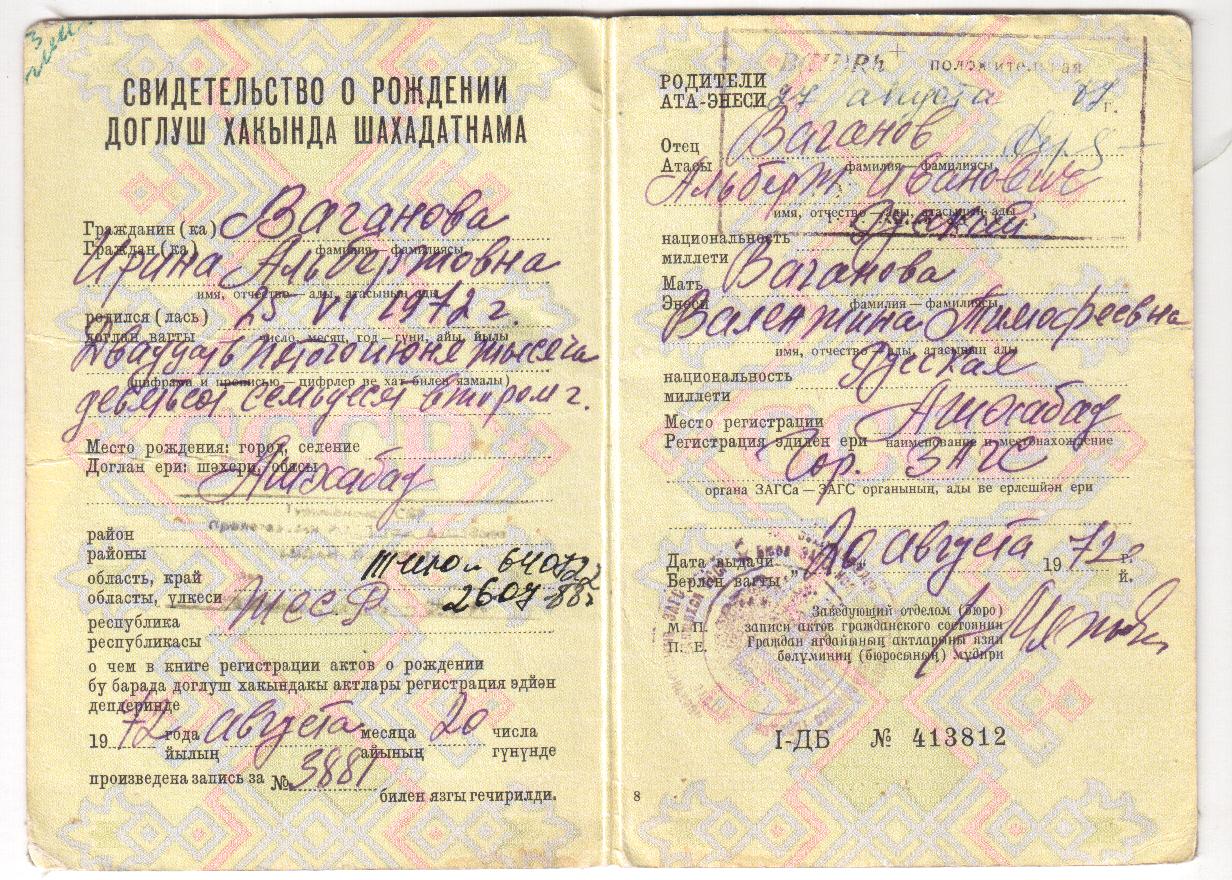 СВИДЕТЕЛЬСТВО О РОЖДЕНИИ
ДОГЛУШ ХАКЫНДА ШАХАДАТНАМА
Гражданин (ка) Ваганова
Граждан (ка) фамилия — фамилиясы
Ирина Альбертовна
имя, отчество — ады, атасының ады
родился (лась) 25 VI 1972 г.
доглан вагты число, месяц, год — гүни, айы, йылы
Двадцать пятого июня тысяча
(цифрами и прописью — цифрлер ве хат билен язмалы)
девятьсот семьдесят втором г.
Место рождения: город, селение
Доглан ери: шәхери, обасы
Ашхабад
район
районы
область, край
области, үлкеси
2607
республика ТССР
республикасы
о чем в книге регистрации актов о рождении
бу барада доглуш хакындакы актлары регистрация эдйән
деплеринде
19 72 года августа месяца 20 числа
йылың айының гүнүнде
произведена запись за № 3881
билен язгы гечирилди.
положительная
РОДИТЕЛИ
АТА-ЭНЕСИ 27 августа 87 г.
Отец Ваганов
Атасы фамилия — фамилиясы
Альберт Иванович
имя, отчество — ады, атасының ады
национальность Русский
миллети
Мать Ваганова
Энеси фамилия — фамилиясы
Валентина Тимофеевна
имя, отчество — ады, атасының ады
национальность Русская
миллети
Место регистрации Ашхабад
Регистрация эдилен ери наименование и местонахождение
Гор. ЗАГС
органа ЗАГСа — ЗАГС органының, ады ве ерлешйән ери
Дата выдачи „20“ августа 1972 г.
Берлен вагты й.
Заведующий отделом (бюро)
М. П. записи актов гражданского состояния
П. Е. Граждан ягдайының актларыны язян
бөлуминиң (бюросының) мүдири
I-ДБ № 413812
8